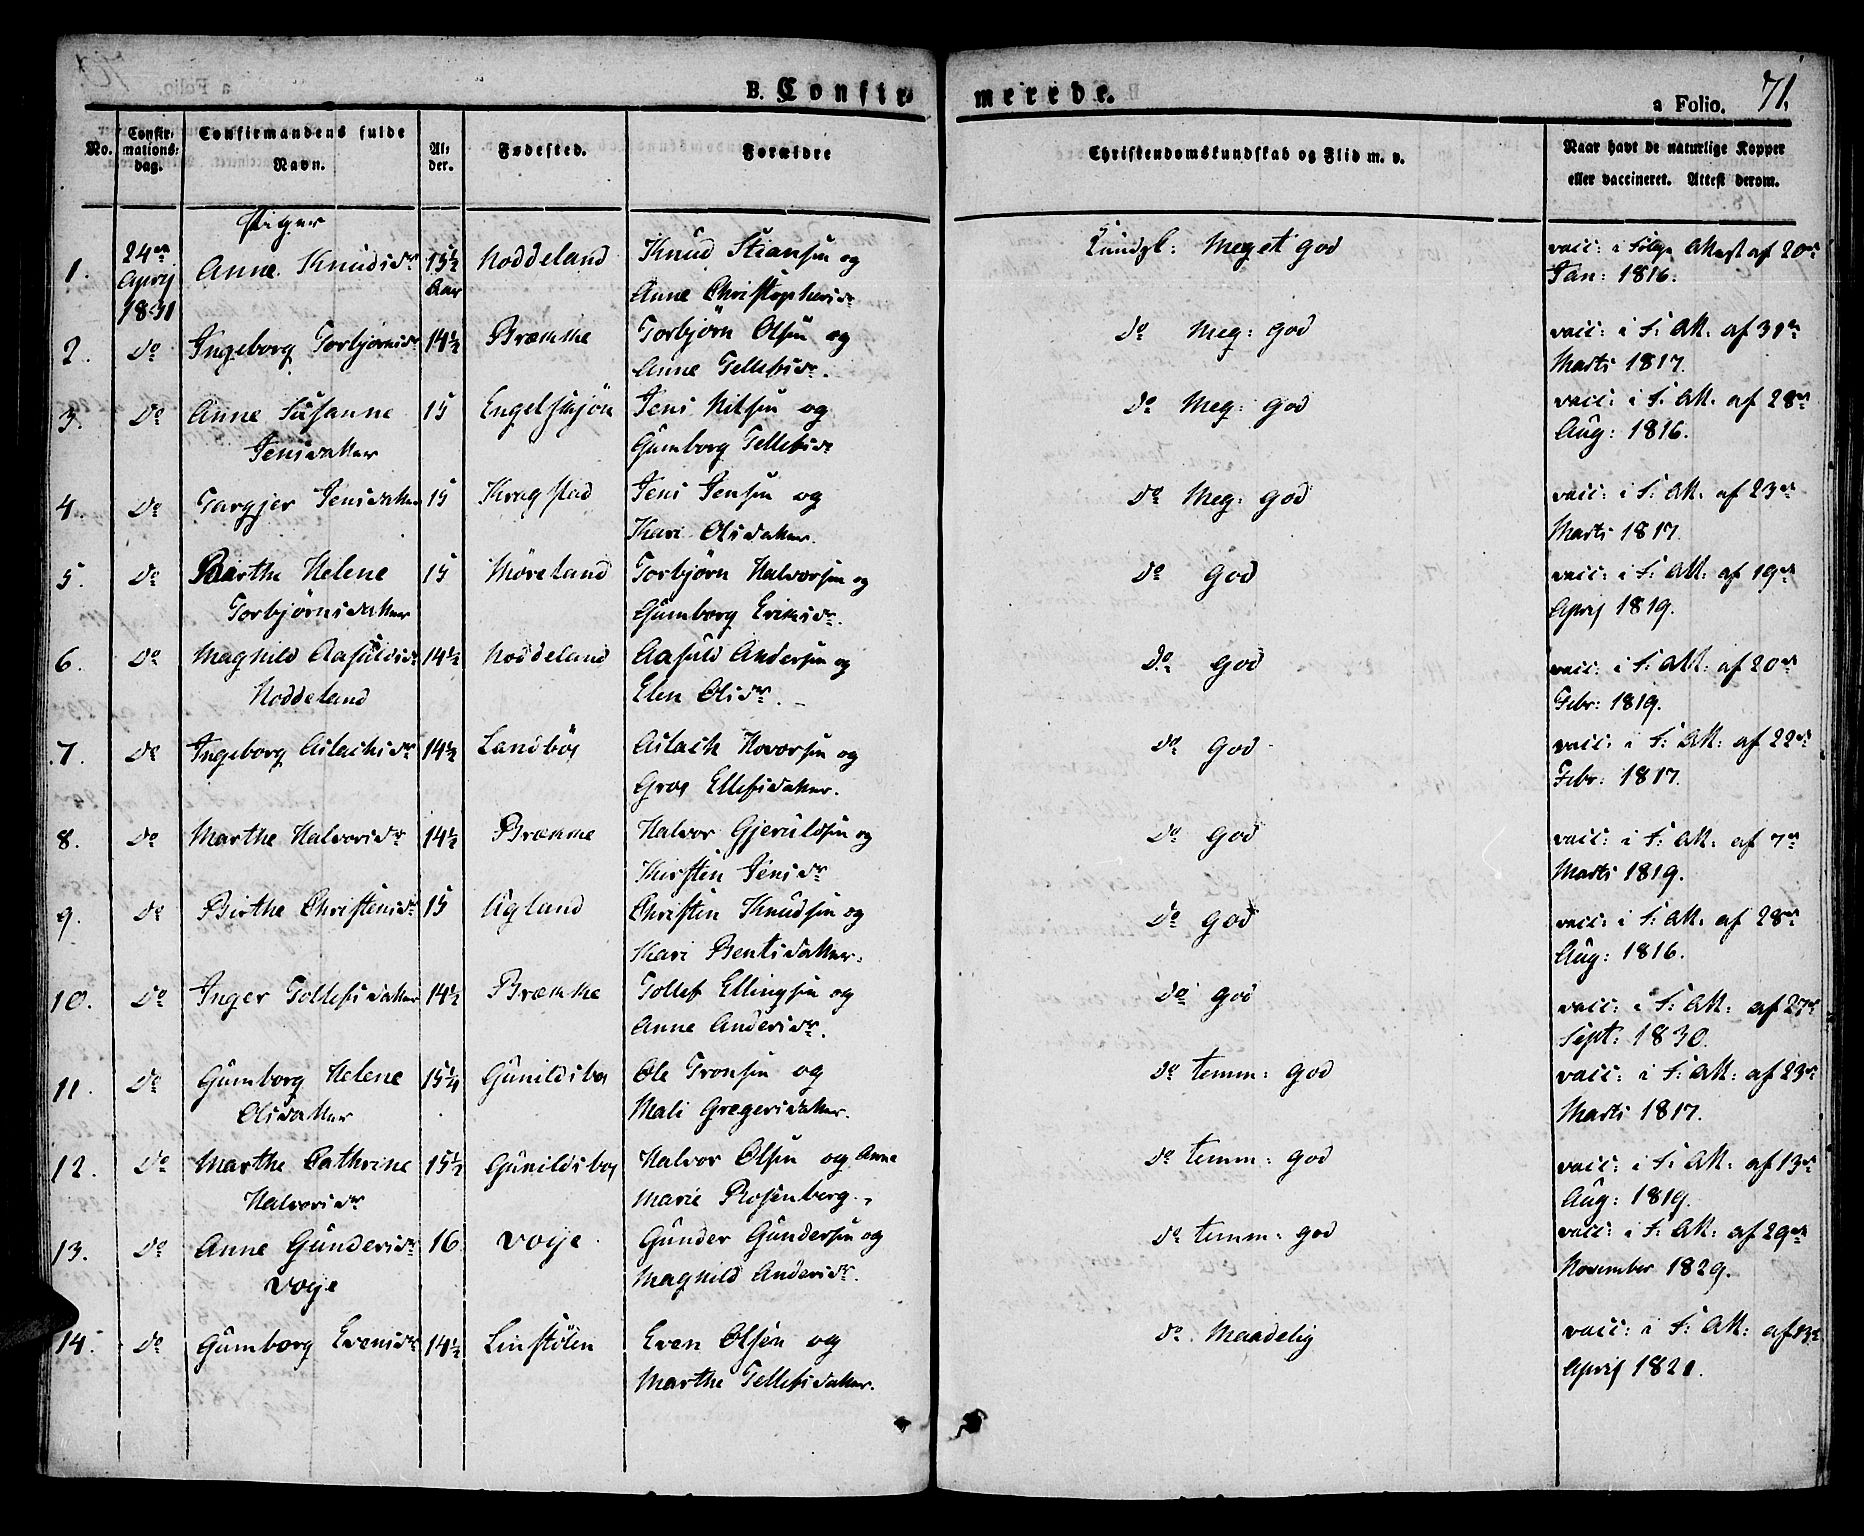 B. Confirmerede.
a Folio. 71.
No. Confirmations: dag. Confirmandens fulde Navn. Alder. Fødested. Forældre Christendomskundskab og Flid m. v. Naar havt de naturlige Kopper eller vaccineret. Attest derom.
Piger
1. 24de April 1831 Anne Knudsdr 15½ Aar Noddeland Knud Steansen og Kundsk: Meget god vacc: i Følge Attest af 20de
Anne Christophersdr Jan: 1816.
2. Do Ingeborg Torbjørnsdr 14½ Bræmme Torbjørn Olsen og Do Meg: god vacc: i F: Att. af 31te
Anne Tellefsdr. Marts 1817.
3. Do Anne Susanne 15 Engelshjøn Jens Nilsen og Do Meg: god vacc: i F. Att. af 28de
Jensdatter Gumborg Tellefsdr Aug: 1816.
4. Do Targjer Jensdatter 15 Kragstad Jens Jensen og Do Meg: god vacc: i F: Att. af 23de
Kari Olsdatter. Marts 1817.
5. Do Berthe Helene 15 Møreland Torbjørn Halvorsen og Do god vacc: i F: Att: af 19de
Torbjørnsdatter Gumborg Eriksdr. April 1819.
6. Do Magnild Aasuldsdr 14½ Noddeland Aasuld Andersen og Do god vacc: i F: Att: af 20de
Noddeland Elen Olsdr. Febr: 1819.
7. Do Ingeborg Aslachsdr 14½ Landbøe Aslach Hovorsen og Do god vacc: i F: Att: af 22de
Groe Ellefsdatter. Febr: 1817.
8. Do Marthe Halvorsdr 14½ Bræmme Halvor Gjeruldsen og Do god vacc: i F: Att. af 7de
Kirsten Jensdr Marts 1819.
9. Do Birthe Christensdr 15 Ugland Christen Knudsen og Do god vacc: i F: Att. af 28de
Kari Bentsdatter. Aug: 1816.
10. Do Inger Tollefsdatter 14½ Bræmme Tollef Ellingsen og Do god vacc: i F: Att: af 27de
Anne Andersdr. Sept: 1830.
11. Do Gumborg Helene 15¼ Gunildsboe Ole Tronsen og Do temm: god vacc: i F: Att: af 23de
Olsdatter Mali Gregersdatter. Marts 1817.
12. Do Marthe Cathrine 15½ Gunildsboe Halvor Olsen og Anne Do temm: god vacc: i F: Att: af 13de
Halvorsdr Marie Rosenberg. Aug: 1819.
13. Do Anne Gundersdr 16 Voije Gunder Gundersen og Do temm: god vacc: i F: Att: af 29de
Voije Magnild Andersdr. November 1829.
14. Do Gumborg Evensdr 14½ Linstølen Even Olsen og Do Maadelig vacc: i F: Att: af 13de
Marthe Tellefsdatter. April 1821.